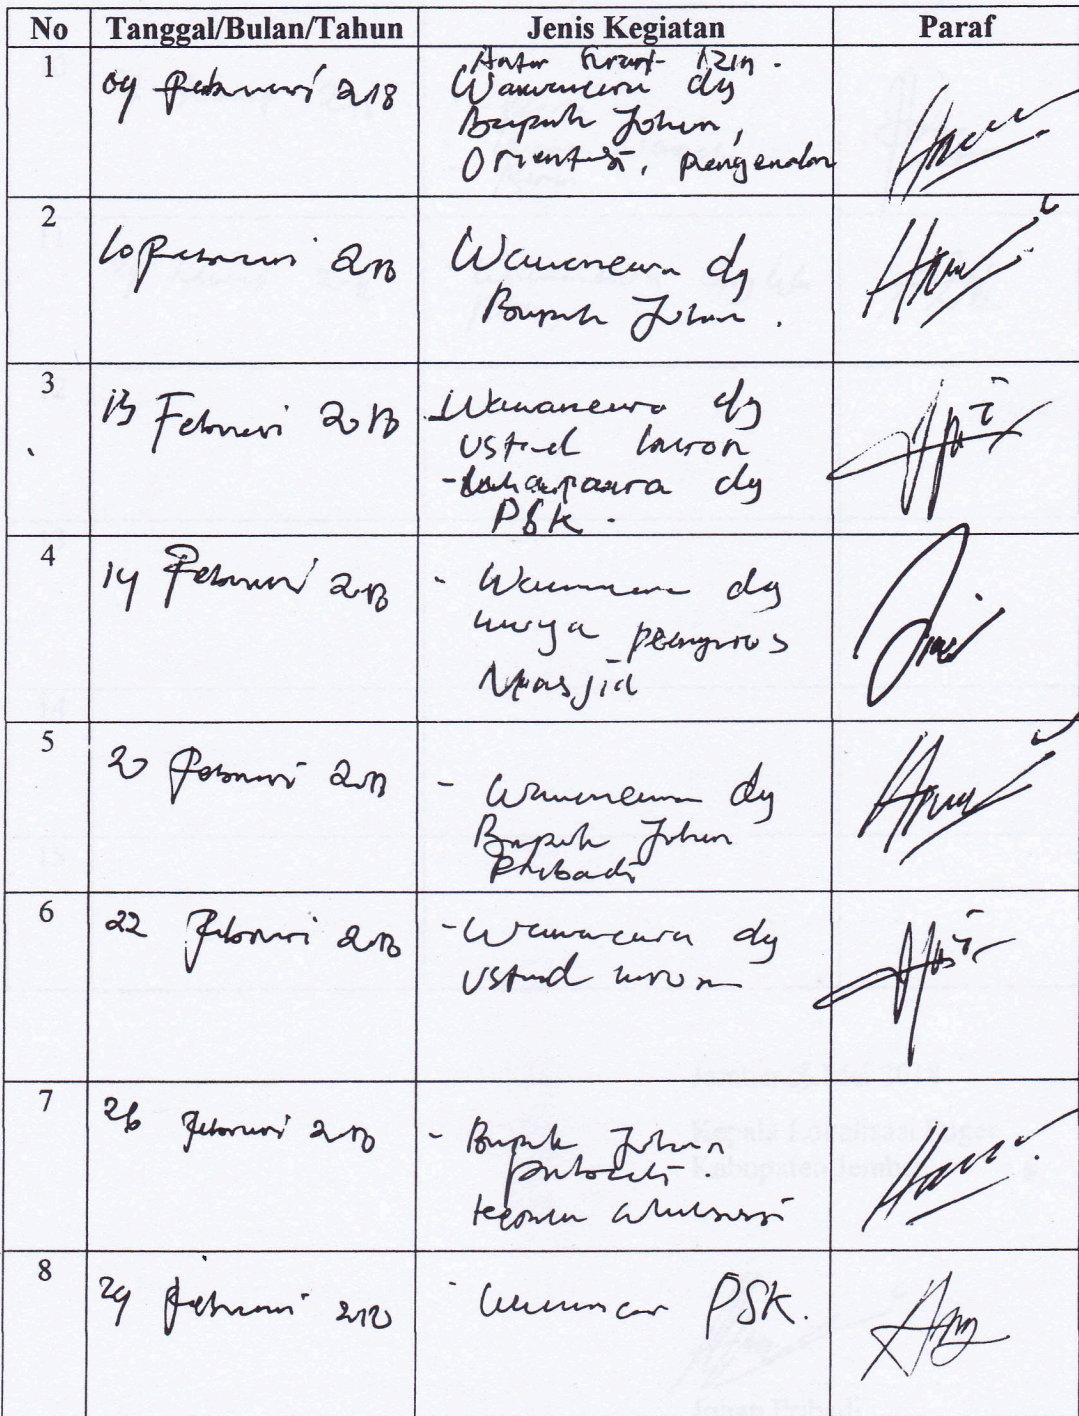 No Tanggal/Bulan/Tahun Jenis Kegiatan Paraf
1
09 Februari 2018
Antar Surat Izin.
Wawancara dg
Bapak Johan,
Orientasi, pengenalan
2
10 Februari 2018
Wawancara dg
Bapak Johan.
3
13 Februari 2018
- Wawancara dg
Ustad
- dg
PSK.
4
14 Februari 2018
- Wawancara dg
pengurus
Masjid
5
20 Februari 2018
- Wawancara dg
Bapak Johan
Pribadi
6
22 Februari 2018
- Wawancara dg
Ustad
7
26 Februari 2018
- Bapak Johan
Pribadi.
8
29 Februari 2018
- PSK.
Kepala Lokalisasi Puger
Kabupaten Jember
Johan Pribadi